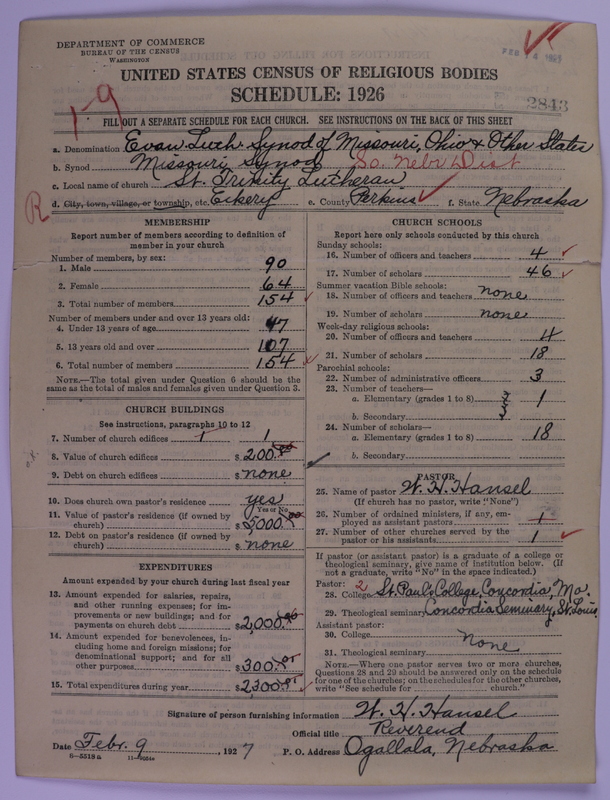 DEPARTMENT OF COMMERCE
BUREAU OF THE CENSUS
WASHINGTON
FEB 14 1927
UNITED STATES CENSUS OF RELIGIOUS BODIES
SCHEDULE: 1926
1-9
2843
FILL OUT A SEPARATE SCHEDULE FOR EACH CHURCH. SEE INSTRUCTIONS ON THE BACK OF THIS SHEET
a. Denomination Evan. Luth. Synod of Missouri, Ohio & Other States
b. Synod Missouri Synod So. Nebr Dist
c. Local name of church St. Trinity Lutheran
R d. City, town, village, or township, etc. Eckery e. County Perkins f. State Nebraska
MEMBERSHIP
Report number of members according to definition of
member in your church
Number of members, by sex:
1. Male 90
2. Female 64
3. Total number of members 154
Number of members under and over 13 years old:
4. Under 13 years of age 47
5. 13 years old and over 107
6. Total number of members 154
NOTE.—The total given under Question 6 should be the
same as the total of males and females given under Question 3.
CHURCH BUILDINGS
See instructions, paragraphs 10 to 12
7. Number of church edifices 1 1
8. Value of church edifices $ 200.00
9. Debt on church edifices $ none
10. Does church own pastor's residence yes
Yes or No
11. Value of pastor's residence (if owned by
church) $ 5000.00
12. Debt on pastor's residence (if owned by
church) $ none
EXPENDITURES
Amount expended by your church during last fiscal year
13. Amount expended for salaries, repairs,
and other running expenses; for im-
provements or new buildings; and for
payments on church debt $ 2,000.00
14. Amount expended for benevolences, in-
cluding home and foreign missions; for
denominational support; and for all
other purposes $ 300.00
15. Total expenditures during year $ 2300.00
CHURCH SCHOOLS
Report here only schools conducted by this church
Sunday schools:
16. Number of officers and teachers 4
17. Number of scholars 46
Summer vacation Bible schools:
18. Number of officers and teachers none
19. Number of scholars none
Week-day religious schools:
20. Number of officers and teachers 4
21. Number of scholars 18
Parochial schools:
22. Number of administrative officers 3
23. Number of teachers—
a. Elementary (grades 1 to 8) 1
b. Secondary
24. Number of scholars—
a. Elementary (grades 1 to 8) 18
b. Secondary
PASTOR
25. Name of pastor W. H. Hansel
(If church has no pastor, write "None")
26. Number of ordained ministers, if any, em-
ployed as assistant pastors 1
27. Number of other churches served by the
pastor or his assistants 1
If pastor (or assistant pastor) is a graduate of a college or
theological seminary, give name of institution below. (If
not a graduate, write "No" in the space indicated.)
Pastor: 2
28. College St. Paul's College, Concordia, Mo.
29. Theological seminary Concordia Seminary, St. Louis
Assistant pastor:
30. College
None
31. Theological seminary
NOTE.—Where one pastor serves two or more churches,
Questions 28 and 29 should be answered only on the schedule
for one of the churches; on the schedules for the other churches,
write "See schedule for church."
Signature of person furnishing information W. H. Hansel
Official title Reverend
Date Febr. 9, 1927 P. O. Address Ogallala, Nebraska
6-5518a